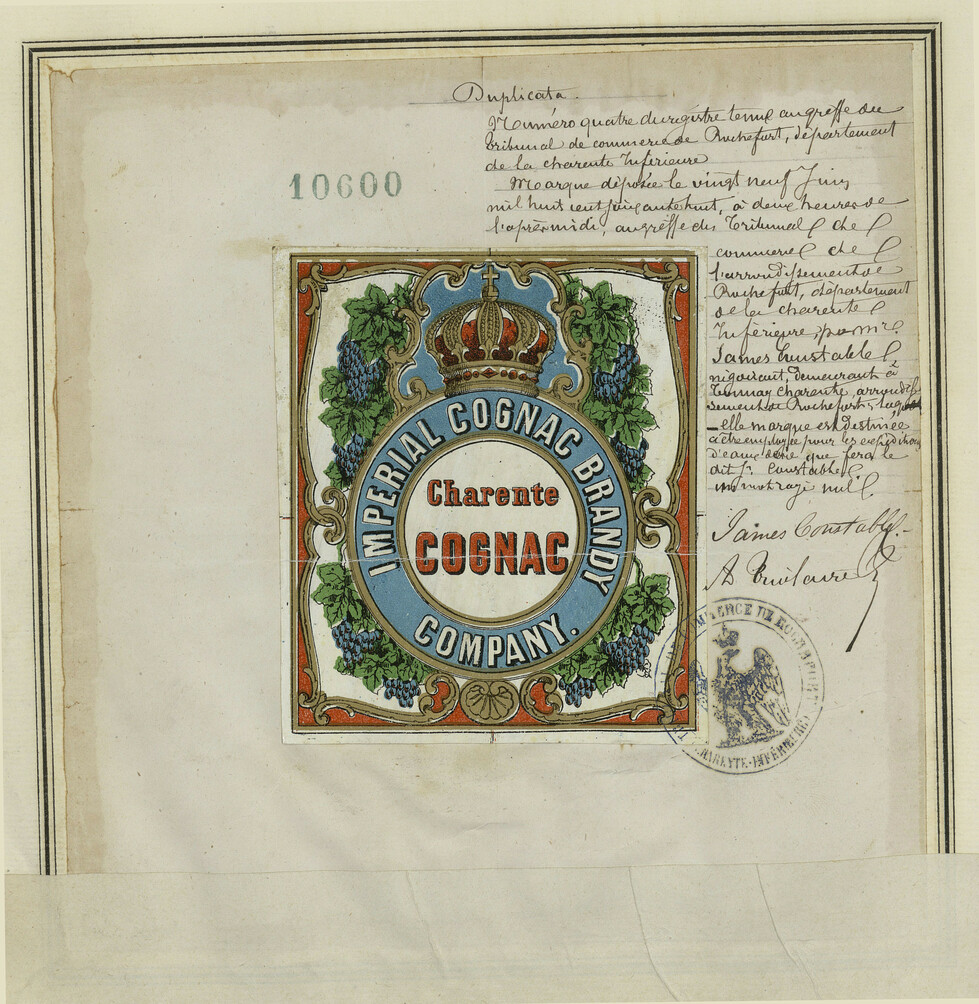 Duplicata.
Numéro quatre du registre tenu au greffe du
Tribunal de commerce de Rochefort, département
de la charente Inférieure
Marque déposée le vingt neuf Juin
mil huit cent cinquante huit, à deux heures de
l'après midi, au greffe du Tribunal de
commerce de
l'arrondissement de
Rochefort, département
de la charente
Inférieure, par Mr.
James Constable
négociant, demeurant à
Tonnay charente, arrondis-
sement de Rochefort, laqu
elle marque est destinée
à être employée pour les expéditions
d'eaux de vie que fera le
dit Sr. Constable
James Constable
10600
IMPERIAL COGNAC BRANDY
COMPANY.
Charente
COGNAC
COMMERCE DE ROCHEFORT
CHARENTE-INFÉRIEURE